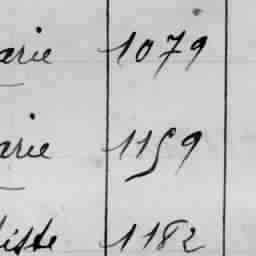 arie 1079
arie 1159
tiste 1182